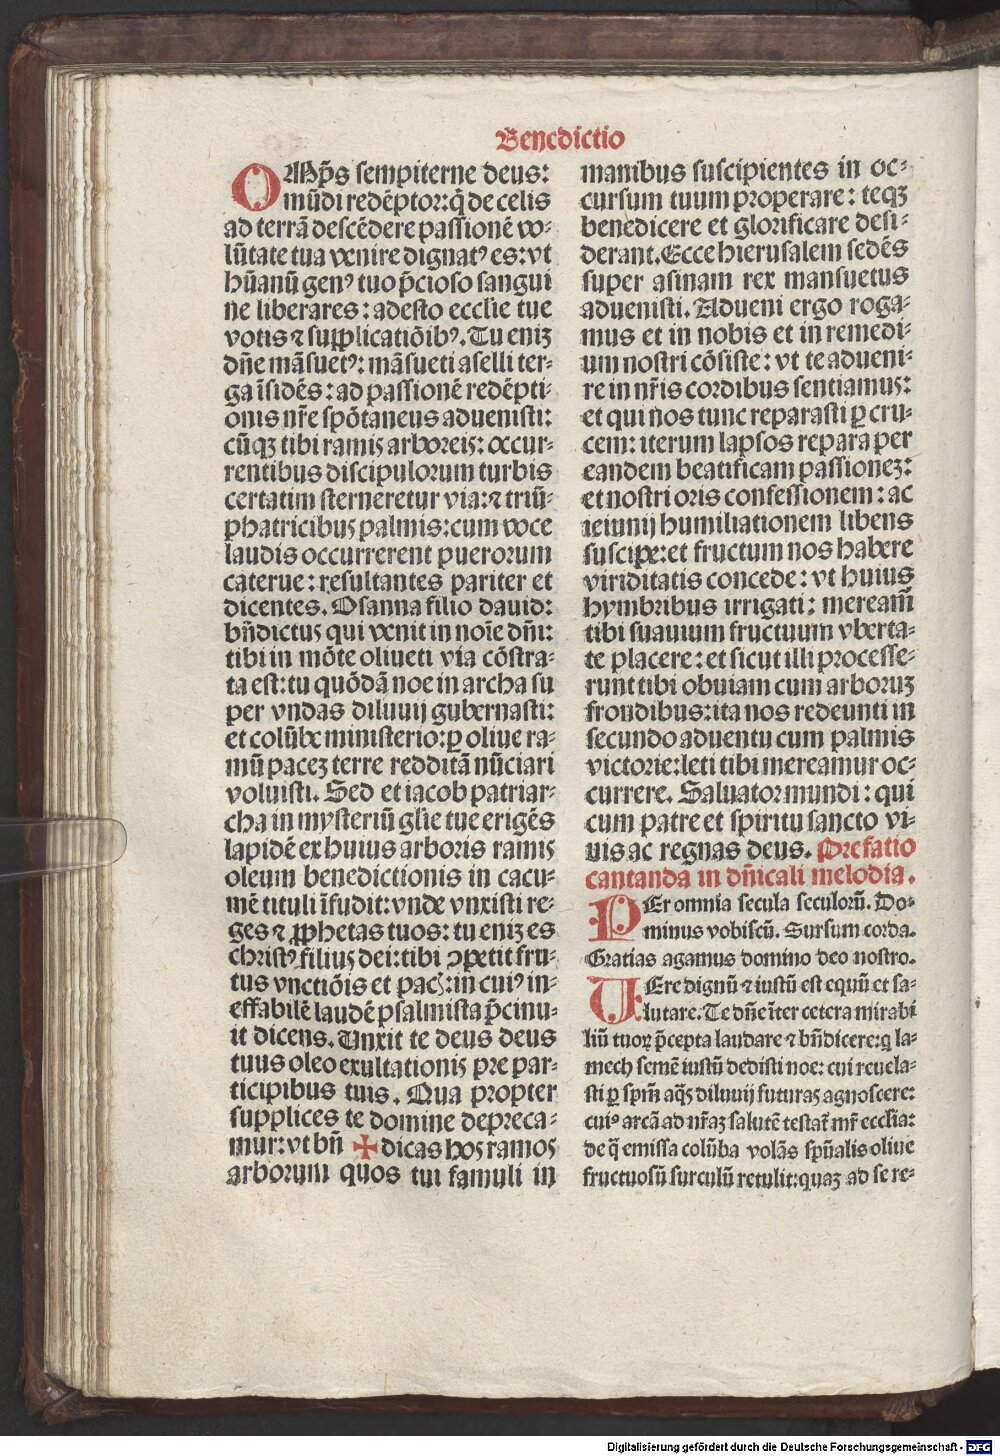 Benedictio
OMp̄s sempiterne deus:
mūdi redēptor: q̄ de celis
ad terrā descēdere passionē vo-
lūtate tua venire dignatꝰ es: vt
hūanū genꝰ tuo p̄cioso sangui
ne liberares: adesto ecclie tue
votis ⁊ supplicatiōibꝰ. Tu eniꝫ
dn̄e māsuetꝰ: māsueti aselli ter-
ga īsidēs: ad passionē redēpti-
onis nr̄e spōtaneus aduenisti:
cūqꝫ tibi ramis arboreis: occur-
rentibus discipulorum turbis
certatim sterneretur via: ⁊ triū-
phatricibus palmis: cum voce
laudis occurrerent puerorum
caterue: resultantes pariter et
dicentes. Osanna filio dauid:
bn̄dictus qui venit in noīe dn̄i:
tibi in mōte oliueti via cōstra-
ta est: tu quōdā noe in archa su
per vndas diluuij gubernasti:
et colūbe ministerio: ꝑ oliue ra-
mū paceꝫ terre redditā nūciari
voluisti. Sed et iacob patriar-
cha in mysteriū glie tue erigēs
lapidē ex huius arboris ramis
oleum benedictionis in cacu-
mē tituli īfudit: vnde vnxisti re-
ges ⁊ ꝓphetas tuos: tu eniꝫ es
christꝰ filius dei: tibi ꝯpetit fru-
tus vnctiōis et pac̄: in cuiꝰ in-
effabilē laudē psalmista p̄cinu-
it dicens. Unxit te deus deus
tuus oleo exultationis pre par-
ticipibus tuis. Qua propter
supplices te domine depreca-
mur: vt bn̄ ✠ dicas hos ramos
arborum quos tui famuli in
manibus suscipientes in oc-
cursum tuum properare: teqꝫ
benedicere et glorificare desi-
derant. Ecce hierusalem sedēs
super asinam rex mansuetus
aduenisti. Adueni ergo roga-
mus et in nobis et in remedi-
um nostri cōsiste: vt te adueni-
re in nr̄is cordibus sentiamus:
et qui nos tunc reparasti ꝑ cru-
cem: iterum lapsos repara per
eandem beatificam passioneꝫ:
et nostri oris confessionem: ac
ieiunij humiliationem libens
suscipe: et fructum nos habere
viriditatis concede: vt huius
hymbribus irrigati: meream̄
tibi suauium fructuum vberta-
te placere: et sicut illi processe-
runt tibi obuiam cum arboruꝫ
frondibus: ita nos redeunti in
secundo aduentu cum palmis
victorie: leti tibi mereamur oc-
currere. Saluator mundi: qui
cum patre et spiritu sancto vi-
uis ac regnas deus. Prefatio
cantanda in dn̄icali melodia.
PEr omnia secula seculorū. Do-
minus vobiscū. Sursum corda.
Gratias agamus domino deo nostro.
UEre dignū ⁊ iustū est equū et sa-
lutare. Te dn̄e īter cetera mirabi
liū tuoꝝ p̄cepta laudare ⁊ bn̄dicere: q̄ la-
mech semē iustū dedisti noe: cui reuela-
sti ꝑ sp̄m aq̄s diluuij futuras agnoscere:
cuiꝰ arcā ad nr̄aꝫ salutē testat̄ mr̄ ecclīa:
de q̄ emissa colūba volās sp̄ualis oliue
fructuosū surculū retulit: quaꝫ ad se re-
Digitalisierung gefördert durch die Deutsche Forschungsgemeinschaft - DFG